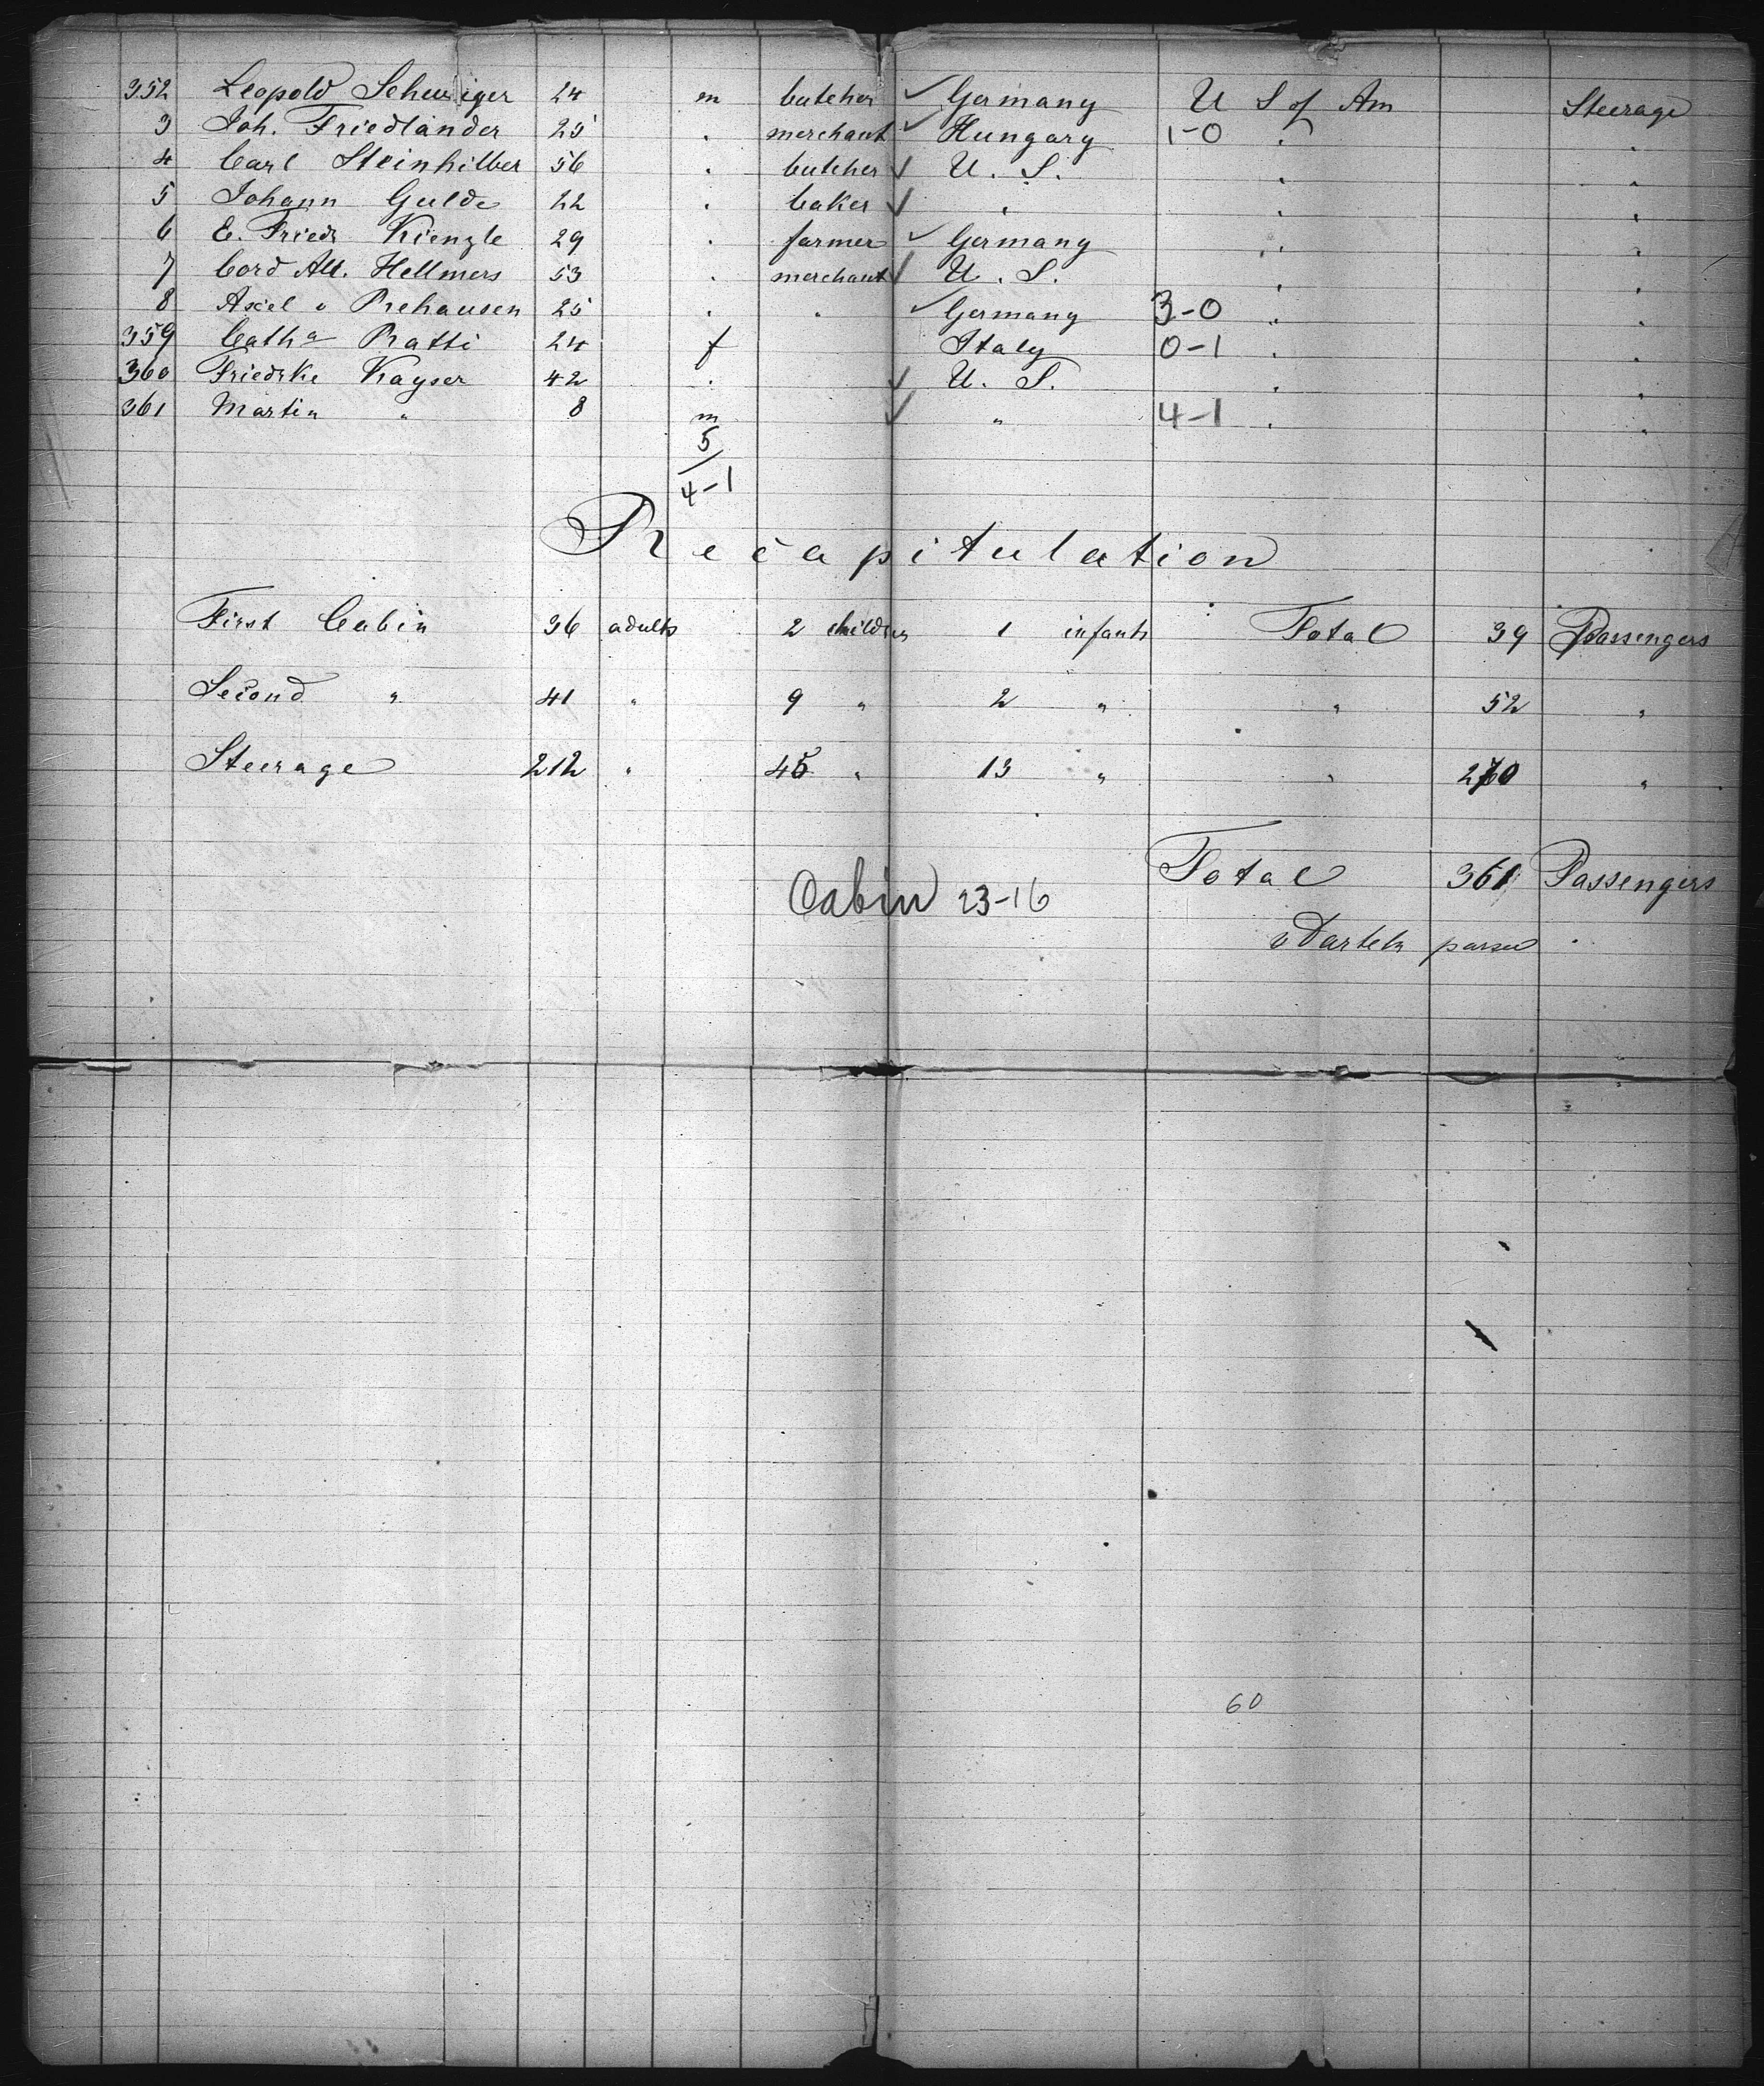 352 Leopold Schwiger 24 m butcher ✓ Germany U S of Am Steerage
3 Joh. Friedländer 25 " merchant ✓ Hungary 1-0 " "
4 Carl Steinhilber 56 " butcher ✓ U. S. " "
5 Johann Gulde 22 " baker ✓ " " "
6 E. Friedr Kienzle 29 " farmer ✓ Germany " "
7 Cord Alb. Hellmers 53 " merchant ✓ U. S. " "
8 Axel v Prehausen 25 " " ✓ Germany 3-0 " "
359 Catha Ratti 24 f Italy 0-1 " "
360 Friedrke Kayser 42 " ✓ U. S. " "
361 Martin " 8 m ✓ " 4-1 " "
5
4-1
Recapitulation
First Cabin 36 adults 2 children 1 infants Total 39 Passengers
Second " 41 " 9 " 2 " " 52 "
Steerage 212 " 45 " 13 " " 270 "
Total 361 Passengers
Cabin 23-16
purser
60